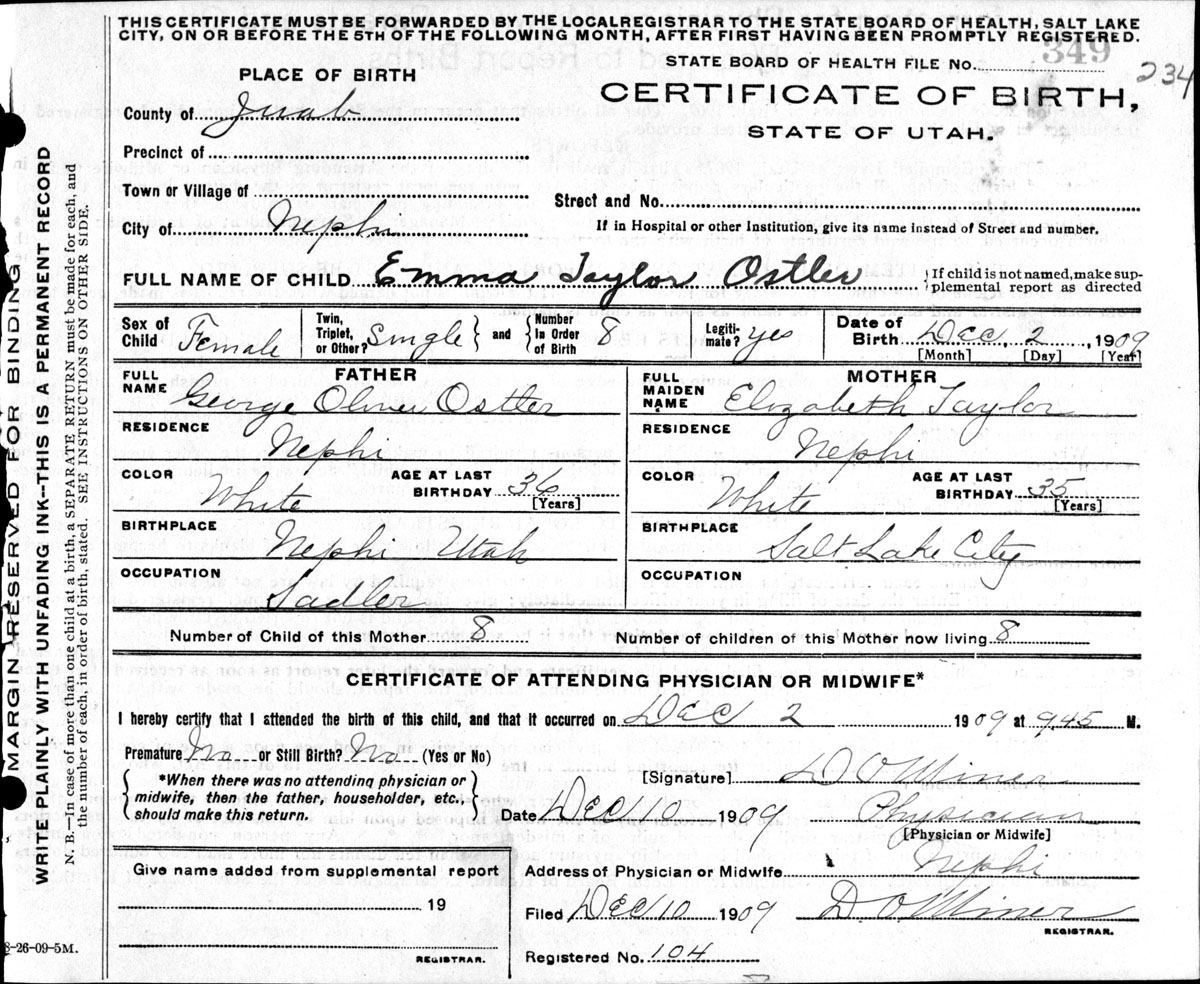 THIS CERTIFICATE MUST BE FORWARDED BY THE LOCAL REGISTRAR TO THE STATE BOARD OF HEALTH, SALT LAKE
CITY, ON OR BEFORE THE 5TH OF THE FOLLOWING MONTH, AFTER FIRST HAVING BEEN PROMPTLY REGISTERED.
STATE BOARD OF HEALTH FILE No. 349
234
PLACE OF BIRTH
CERTIFICATE OF BIRTH,
STATE OF UTAH.
County of Juab
Precinct of
Town or Village of
Street and No.
City of Nephi
If in Hospital or other Institution, give its name instead of Street and number.
FULL NAME OF CHILD Emma Taylor Ostler {If child is not named, make supplemental report as directed
Sex of Child Female
Twin, Triplet, or Other? Single } and { Number In Order of Birth 8
Legitimate? yes
Date of Birth Dec, 2, 1909
[Month] [Day] [Year]
FATHER
FULL NAME George Oliver Ostler
RESIDENCE Nephi
COLOR White AGE AT LAST BIRTHDAY 36 [Years]
BIRTHPLACE Nephi Utah
OCCUPATION Sadler
MOTHER
FULL MAIDEN NAME Elizabeth Taylor
RESIDENCE Nephi
COLOR White AGE AT LAST BIRTHDAY 35 [Years]
BIRTHPLACE Salt Lake City
OCCUPATION
Number of Child of this Mother 8 Number of children of this Mother now living 8
CERTIFICATE OF ATTENDING PHYSICIAN OR MIDWIFE*
I hereby certify that I attended the birth of this child, and that it occurred on Dec 2 1909 at 9.45 M.
Premature No or Still Birth? No (Yes or No)
*When there was no attending physician or
midwife, then the father, householder, etc.,
should make this return.
[Signature] D O Miner
Date Dec 10 1909 Physician
[Physician or Midwife]
Give name added from supplemental report
19
REGISTRAR.
Address of Physician or Midwife Nephi
Filed Dec 10 1909 D. O Miner
REGISTRAR.
Registered No. 104
8-26-09-5M.
MARGIN RESERVED FOR BINDING
WRITE PLAINLY WITH UNFADING INK--THIS IS A PERMANENT RECORD
N. B.--In case of more than one child at a birth, a SEPARATE RETURN must be made for each, and
the number of each, in order of birth, stated. SEE INSTRUCTIONS ON OTHER SIDE.